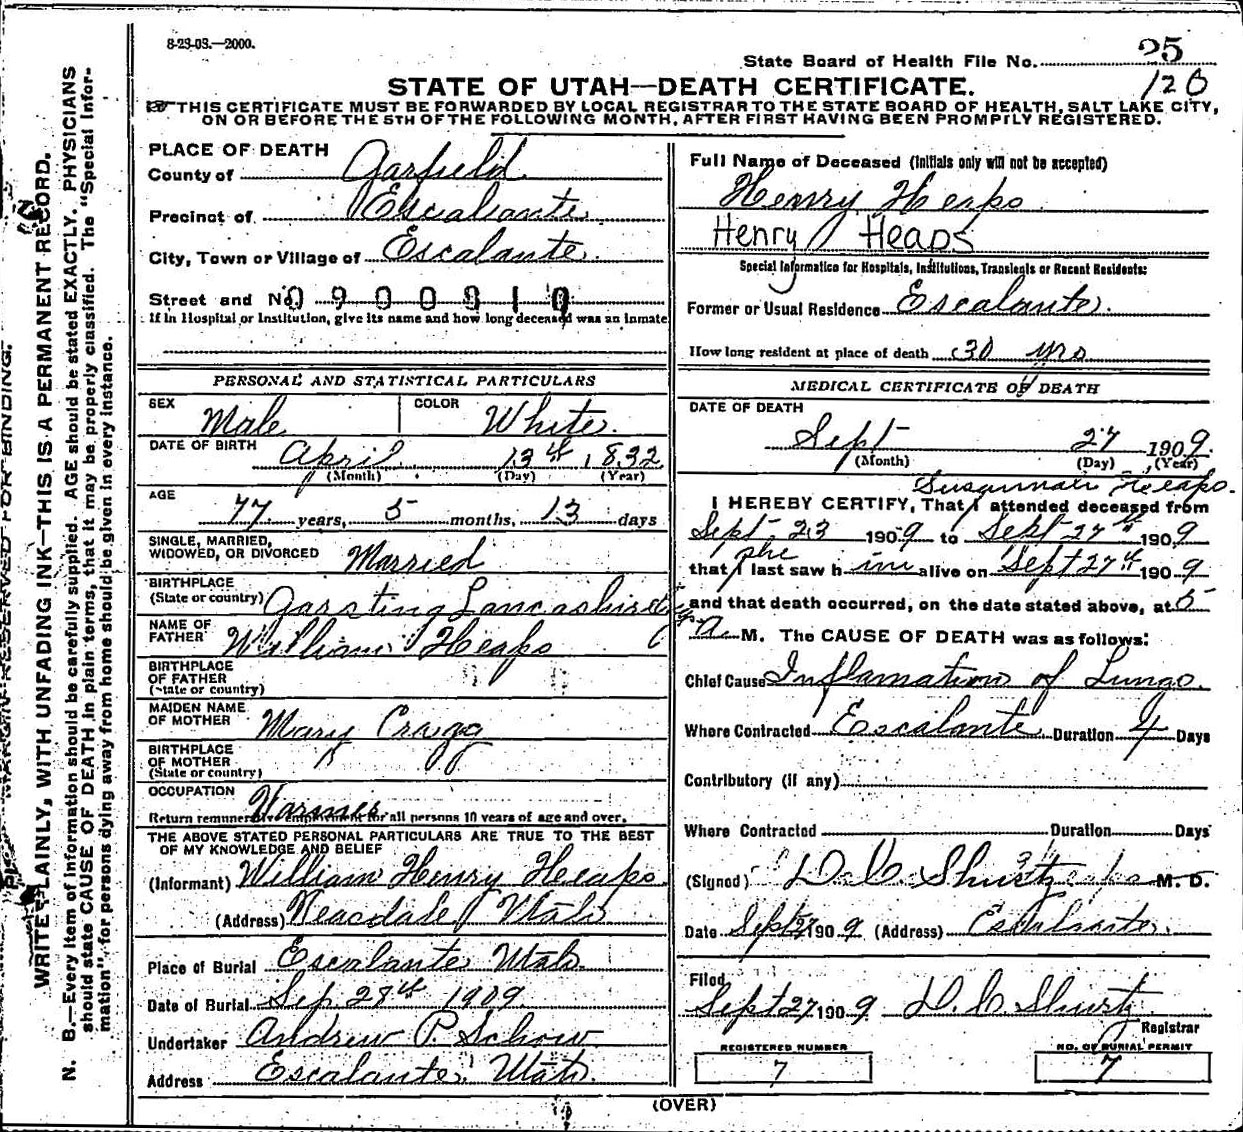 8-23-03.—2000.
State Board of Health File No. 25
120
STATE OF UTAH—DEATH CERTIFICATE.
THIS CERTIFICATE MUST BE FORWARDED BY LOCAL REGISTRAR TO THE STATE BOARD OF HEALTH, SALT LAKE CITY,
ON OR BEFORE THE 5TH OF THE FOLLOWING MONTH, AFTER FIRST HAVING BEEN PROMPTLY REGISTERED.
PLACE OF DEATH
County of Garfield
Precinct of Escalante
City, Town or Village of Escalante.
Street and No. 0900910
If in Hospital or Institution, give its name and how long deceased was an inmate
PERSONAL AND STATISTICAL PARTICULARS
SEX Male COLOR White.
DATE OF BIRTH April 13th, 1832
(Month) (Day) (Year)
AGE
77 years, 5 months, 13 days
SINGLE, MARRIED,
WIDOWED, OR DIVORCED Married
BIRTHPLACE
(State or country) Garsting Lancashire
NAME OF
FATHER William Heaps
BIRTHPLACE
OF FATHER
(State or country)
MAIDEN NAME
OF MOTHER Mary Cragg
BIRTHPLACE
OF MOTHER
(State or country)
OCCUPATION Farmer
Return remunerative employment for all persons 10 years of age and over.
THE ABOVE STATED PERSONAL PARTICULARS ARE TRUE TO THE BEST
OF MY KNOWLEDGE AND BELIEF
(Informant) William Henry Heaps
(Address) Utah
Place of Burial Escalante Utah.
Date of Burial Sep 28th 1909
Undertaker Andrew P. Schow
Address Escalante Utah.
Full Name of Deceased (Initials only will not be accepted)
Henry Heaps
Henry Heaps
Special Information for Hospitals, Institutions, Transients or Recent Residents:
Former or Usual Residence Escalante.
How long resident at place of death 30 yrs
MEDICAL CERTIFICATE OF DEATH
DATE OF DEATH
Sept 27 1909.
(Month) (Day) (Year)
Susannah Heaps.
I HEREBY CERTIFY, That I attended deceased from
Sept. 23 1909 to Sept 27th 1909
she
that I last saw him alive on Sept 27th 1909
and that death occurred, on the date stated above, at 5
a. M. The CAUSE OF DEATH was as follows:
Chief Cause Inflamation of Lungs.
Where Contracted Escalante Duration 4 Days
Contributory (if any)
Where Contracted Duration Days
(Signed) D. C. Shurtz M. D.
Date Sept 27 1909 (Address) Escalante.
Filed
Sept 27 1909 D. C. Shurtz
Registrar
REGISTERED NUMBER
7
NO. OF BURIAL PERMIT
7
(OVER)
MARGIN RESERVED FOR BINDING.
WRITE PLAINLY, WITH UNFADING INK—THIS IS A PERMANENT RECORD.
N. B.—Every item of information should be carefully supplied. AGE should be stated EXACTLY. PHYSICIANS
should state CAUSE OF DEATH in plain terms, that it may be properly classified. The "Special Infor-
mation" for persons dying away from home should be given in every instance.